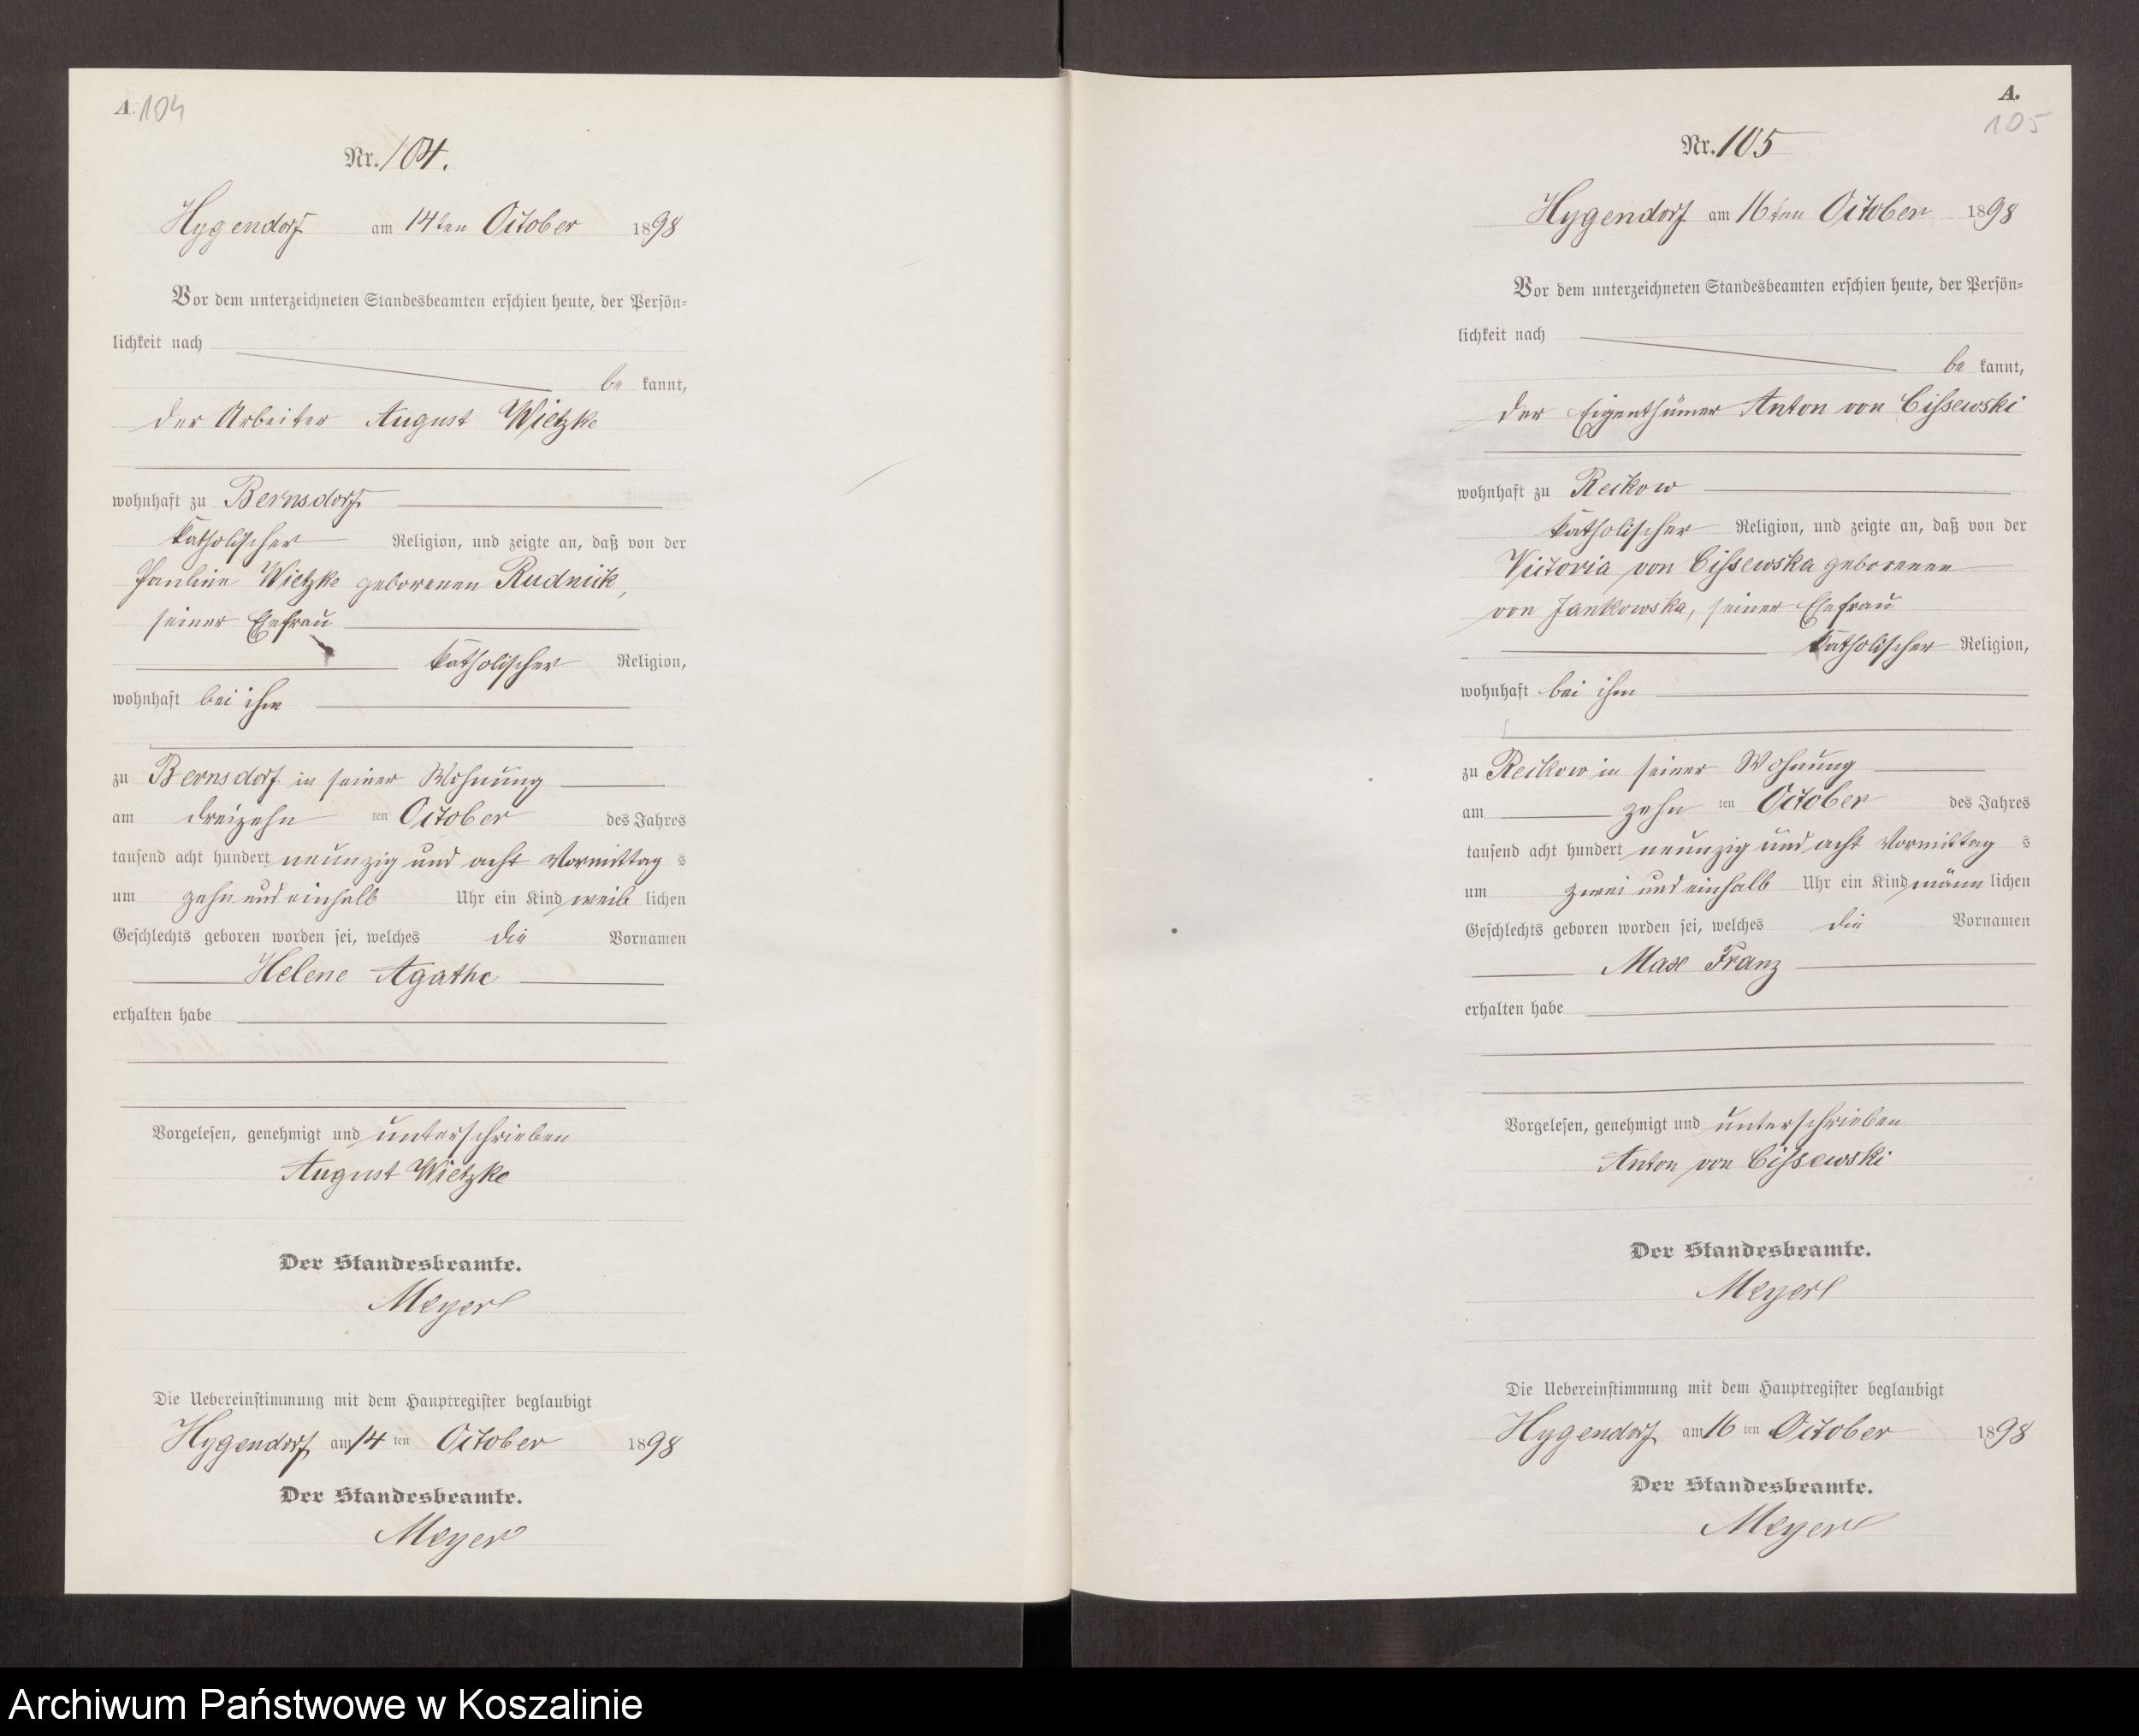 A. 104
Nr. 104.
Hygendorf am 14ten October 1898
Vor dem unterzeichneten Standesbeamten erschien heute, der Persön=
lichkeit nach
be kannt,
der Arbeiter August Wietzke
wohnhaft zu Bernsdorf
katholischer Religion, und zeigte an, daß von der
Pauline Wietzke geborenen Rudnick,
seiner Ehefrau
katholischer Religion,
wohnhaft bei ihm
zu Bernsdorf in seiner Wohnung
am dreizehn ten October des Jahres
tausend acht hundert neunzig und acht Vormittag s
um zehn und einhalb Uhr ein Kind weib lichen
Geschlechts geboren worden sei, welches die Vornamen
Helene Agathe
erhalten habe
Vorgelesen, genehmigt und unterschrieben
August Wietzke
Der Standesbeamte.
Meyer
Die Uebereinstimmung mit dem Hauptregister beglaubigt
Hygendorf am 14 ten October 1898
Der Standesbeamte.
Meyer
A.
105
Nr. 105
Hygendorf am 16ten October 1898
Vor dem unterzeichneten Standesbeamten erschien heute, der Persön=
lichkeit nach
be kannt,
der Eigenthümer Anton von Cissewski
wohnhaft zu Reckow
katholischer Religion, und zeigte an, daß von der
Victoria von Cissewska geborenen
von Jankowska, seiner Ehefrau
katholischer Religion,
wohnhaft bei ihm
zu Reckow in seiner Wohnung
am zehn ten October des Jahres
tausend acht hundert neunzig und acht Vormittag s
um zwei und einhalb Uhr ein Kind männ lichen
Geschlechts geboren worden sei, welches die Vornamen
Max Franz
erhalten habe
Vorgelesen, genehmigt und unterschrieben
Anton von Cissewski
Der Standesbeamte.
Meyer
Die Uebereinstimmung mit dem Hauptregister beglaubigt
Hygendorf am 16 ten October 1898
Der Standesbeamte.
Meyer
Archiwum Państwowe w Koszalinie